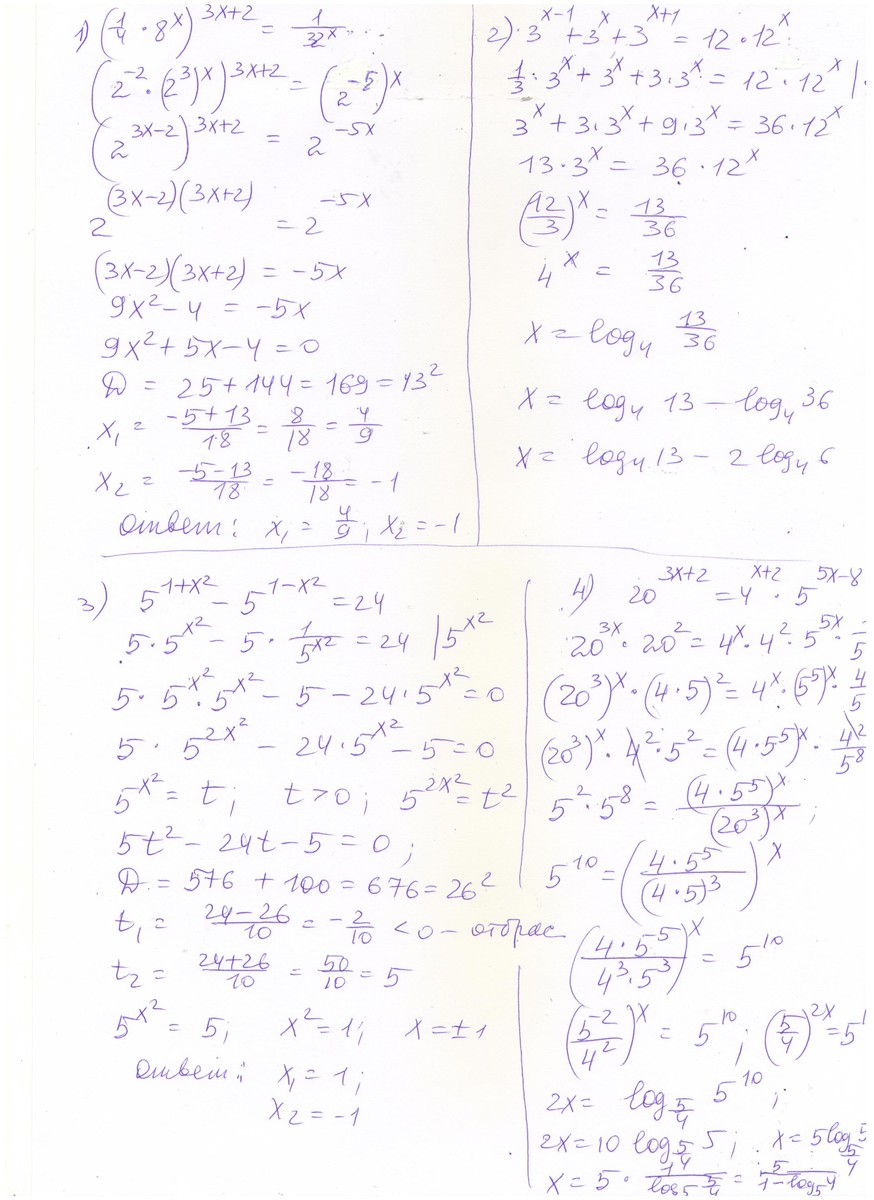 1) (1/4 · 8^x)^(3x+2) = 1/32^x
(2^(-2) · (2^3)^x)^(3x+2) = (2^(-5))^x
(2^(3x-2))^(3x+2) = 2^(-5x)
2^((3x-2)(3x+2)) = 2^(-5x)
(3x-2)(3x+2) = -5x
9x² - 4 = -5x
9x² + 5x - 4 = 0
D = 25 + 144 = 169 = 13²
x₁ = (-5+13)/18 = 8/18 = 4/9
x₂ = (-5-13)/18 = -18/18 = -1
Ответ: x₁ = 4/9; x₂ = -1
2) 3^(x-1) + 3^x + 3^(x+1) = 12 · 12^x
1/3 · 3^x + 3^x + 3 · 3^x = 12 · 12^x | ·
3^x + 3 · 3^x + 9 · 3^x = 36 · 12^x
13 · 3^x = 36 · 12^x
(12/3)^x = 13/36
4^x = 13/36
x = log₄ 13/36
x = log₄ 13 - log₄ 36
x = log₄ 13 - 2 log₄ 6
3) 5^(1+x²) - 5^(1-x²) = 24
5 · 5^(x²) - 5 · 1/5^(x²) = 24 | 5^(x²)
5 · 5^(x²) · 5^(x²) - 5 - 24 · 5^(x²) = 0
5 · 5^(2x²) - 24 · 5^(x²) - 5 = 0
5^(x²) = t; t > 0; 5^(2x²) = t²
5t² - 24t - 5 = 0;
D = 576 + 100 = 676 = 26²
t₁ = (24-26)/10 = -2/10 < 0 - отбрас
t₂ = (24+26)/10 = 50/10 = 5
5^(x²) = 5; x² = 1; x = ±1
Ответ: x₁ = 1;
x₂ = -1
4) 20^(3x+2) = 4^(x+2) · 5^(5x-8)
20^(3x) · 20² = 4^x · 4² · 5^(5x) · /5
(20³)^x · (4·5)² = 4^x · (5⁵)^x · 4/5
(20³)^x · 4² · 5² = (4·5⁵)^x · 4²/5⁸
5² · 5⁸ = (4·5⁵)^x/(20³)^x;
5¹⁰ = (4·5⁵/(4·5)³)^x
(4·5⁵/(4³·5³))^x = 5¹⁰
(5²/4²)^x = 5¹⁰; (5/4)^(2x) = 5¹
2x = log_(5/4) 5¹⁰;
2x = 10 log_(5/4) 5; x = 5 log_(5/4) 5
x = 5 · 1/(log₅ 5/4) = 5/(1 - log₅ 4)